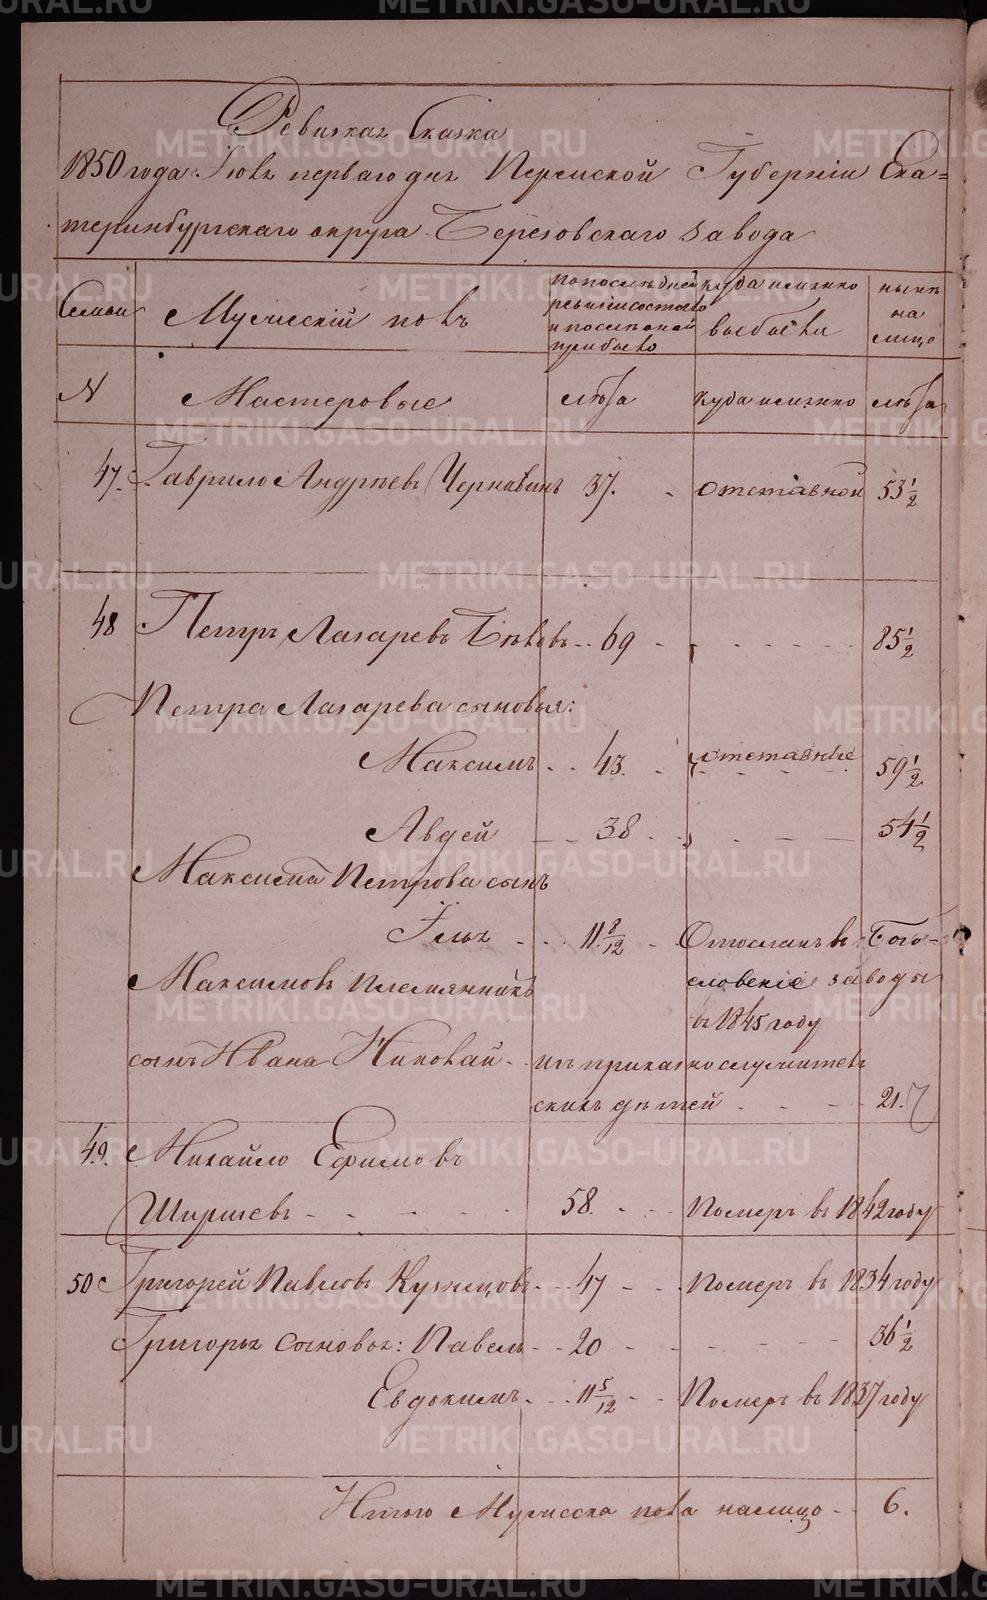 Ревизкая Сказка
1850 года Іюля перваго дня Пермской Губерніи Ека=
теринбургскаго округа Березовскаго завода
Семьи
Мужескій полъ
по последней
ревизіи состояло
и после оной
прибыло
куда именно
выбыли
ныне
на
лицо
N
Мастеровые
лѣта
куда именно
лѣта
47. Гаврило Андреевъ Чернавинъ 37. отставной 53 1/2
48 Петръ Лазаревъ Бѣловъ 69 85 1/2
Петра Лазарева сыновья:
Максимъ 43. отставные 59 1/2
Авдей 38 54 1/2
Максима Петрова сынъ
Илья 11 8/12 Отосланъ въ Бого-
словскіе заводы
въ 1845 году
Максимовъ племянникъ
сынъ Ивана Николай изъ приказно служитель
скихъ детей 21.
49. Михайло Ефимовъ
Ширшевъ 58. Померъ въ 1842 году
50 Григорей Павловъ Кузнецовъ 47 Померъ въ 1834 году
Григорья сыновья: Павелъ 20 36 1/2
Евдокимъ 11 5/12 Померъ въ 1837 году
Итого Мужеска пола на лицо 6.
METRIKI.GASO-URAL.RU